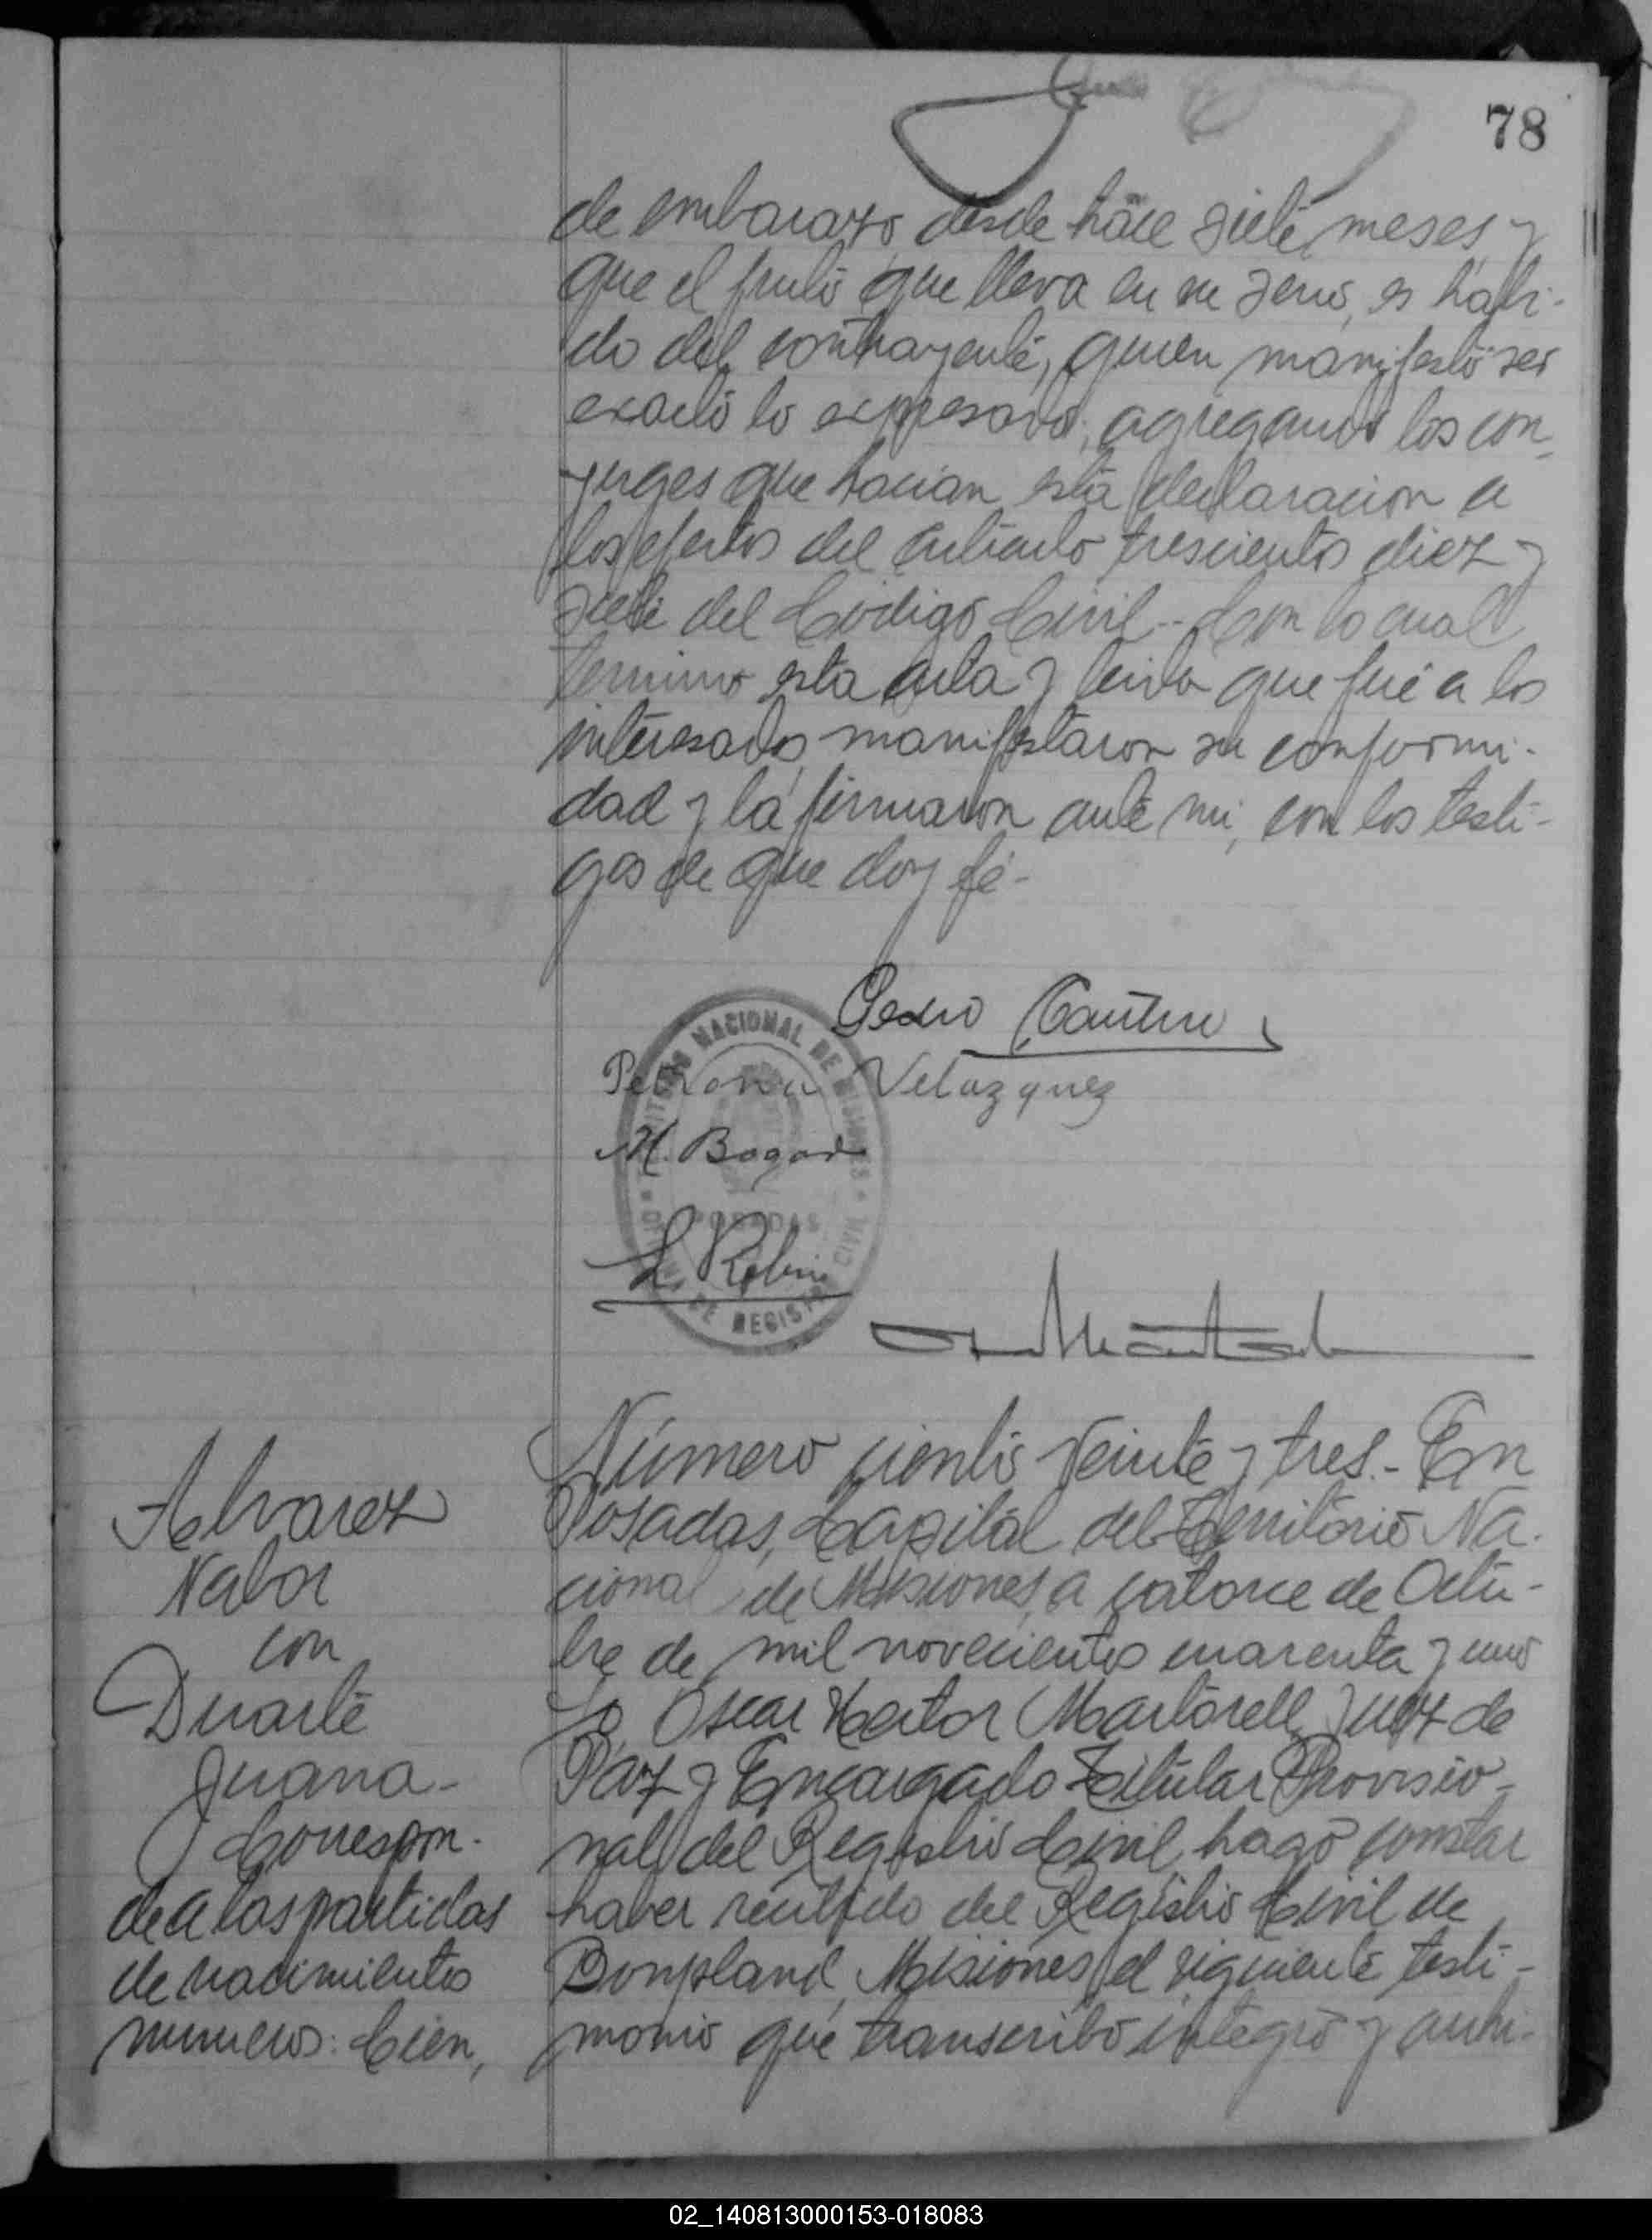 78
de embarazo, desde hace siete meses y
que el fruto que lleva en su seno, es habi-
do del contrayente, quien manifestó ser
exacto lo expresado, agregando los con-
yuges que hacian esta declaracion a
los efectos del articulo trescientos diez y
siete del Código Civil.- Con lo cual
termino esta acta y leida que fué a los
interesados manifestaron su conformi-
dad y la firmaron ante mi, con los testi-
gos de que doy fé-
Pedro
Petrona Velazquez
M. Bogado
TERRITORIO NACIONAL DE MISIONES
POSADAS
OFICINA DE REGISTRO CIVIL
Alvarez
Nabor
con
Duarte
Juana-
Correspon-
de a las partidas
de nacimientos
numeros: Cien,
Número ciento veinte y tres.- En
Posadas, Capital del Territorio Na-
cional de Misiones, a catorce de Octu-
bre de mil novecientos cuarenta y uno
Yo, Oscar Hector Martorell, Juez de
Paz y Encargado Titular Provisio-
nal del Registro Civil, hago constar
haber recibido del Registro Civil de
Bonpland, Misiones, el siguiente testi-
monio que transcribo integro y archi-
02_140813000153-018083